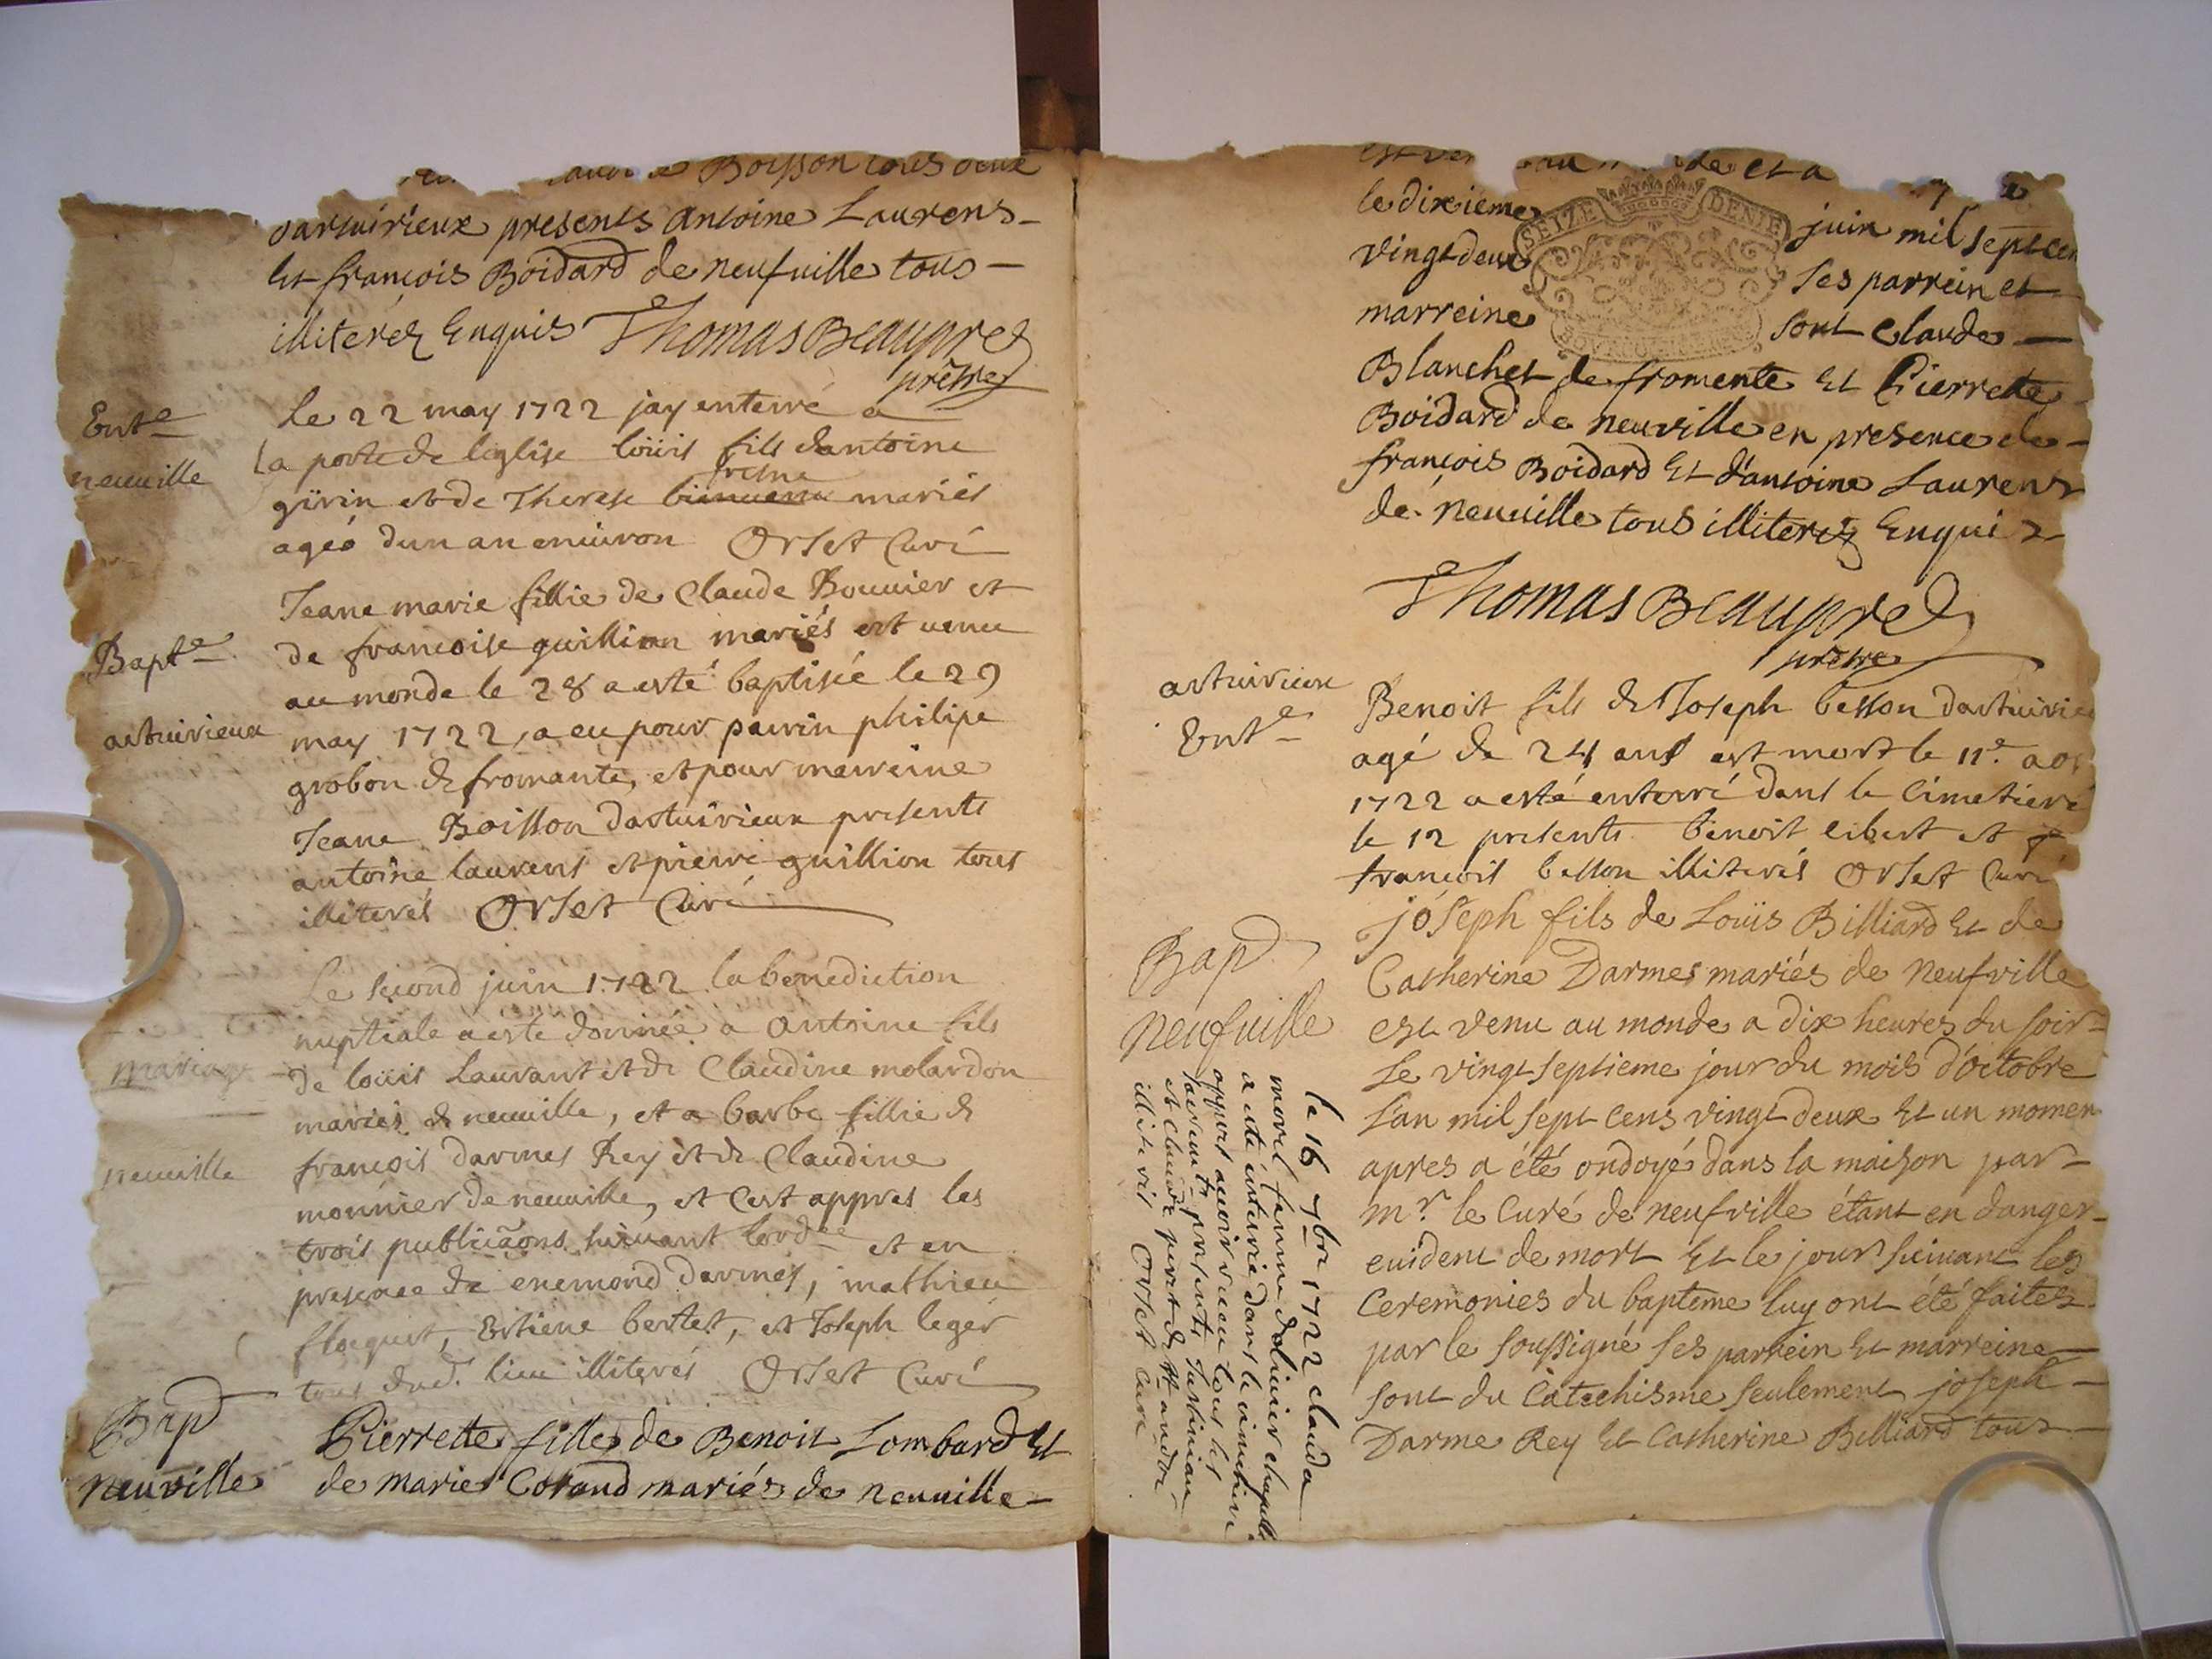 Boisson tous deux
dartuirieux presents Antoine Laurens
Et françois Boidard de neufuille tous
illiterez Enquis Thomas Beaupré
prêtre
Ent.e
neuuille
Le 22 may 1722 jay enterré a
la porte de leglise loüis fils dantoine
girin et de Therese bienuenu mariés
agéé dun an enuiron Orset Curé
Bapt.e
artuirieux
Jeane marie fillie de Claude Bouuier et
de francoise guillion mariés est uenue
au monde le 28 a esté baptisée le 29
may 1722, a eu pour parrin philipe
grobon de fromante, et pour marreine
Jeane Boisson dartuirieux presents
antoine laurens et pierre guillion tous
illiterés Orset Curé
mariage
neuuille
Le second juin 1722 la benediction
nuptiale a esté donnée a Antoine fils
de loüis Laurant et de Claudine molardon
mariés de neuuille, et a barbe fillie de
françois darmes Rey et de Claudine
monnier de neuuille, et cest appres les
trois publicãons suiuant lord.ce et en
presence de enemond darmes, mathieu
floquet, Estiene bertet, et Joseph leger
tous dud. lieu illiterés Orset Curé
Bap
neuville
Pierrette fille de Benoit Lombard Et
de Marie Corand mariés de neuuille
est ven au de et a
le dixieme juin mil sept cen
SEIZE DENIE
vingt deux ses parrein et
marreine sont Claude
Blanchet de fromente Et Pierrette
Boidard de neuville en presence de
françois Boidard Et d'antoine Laurens
de neuuille tous illiterez Enquis
Thomas Beaupré
prêtre
artuirieux
Ent.e
Benoit fils de Joseph besson dartuirieu
agé de 24 ans est mort le 11.e aos
1722 a esté enterré dans le Cimetiere
le 12 presents benoit libert et
françois besson illiterés Orset Curé
Bap
neufuille
joseph fils de Loüis Billiard Et de
Catherine Darmes mariés de neufville
est venu au monde a dix heures du soir
Le vingt septieme jour du mois d'octobre
L'an mil sept cens vingt deux Et un momen
apres a été ondoyé dans la maison par
m.r le Curé de neufville étant en danger
euident de mort Et le jour suiuant les
Ceremonies du baptême luy ont été faites
par le soussigné ses parrein Et marreine
sont du Catechisme seulement joseph
Darme Rey Et Catherine Billiard tous
le 16 7bre 1722 clauda
morel femme dolinier chapelle
a eté enterrée dans le cimetiere
appres auoir receu tous les
sacrem.ts presents
et claude
illiterés Orset Curé